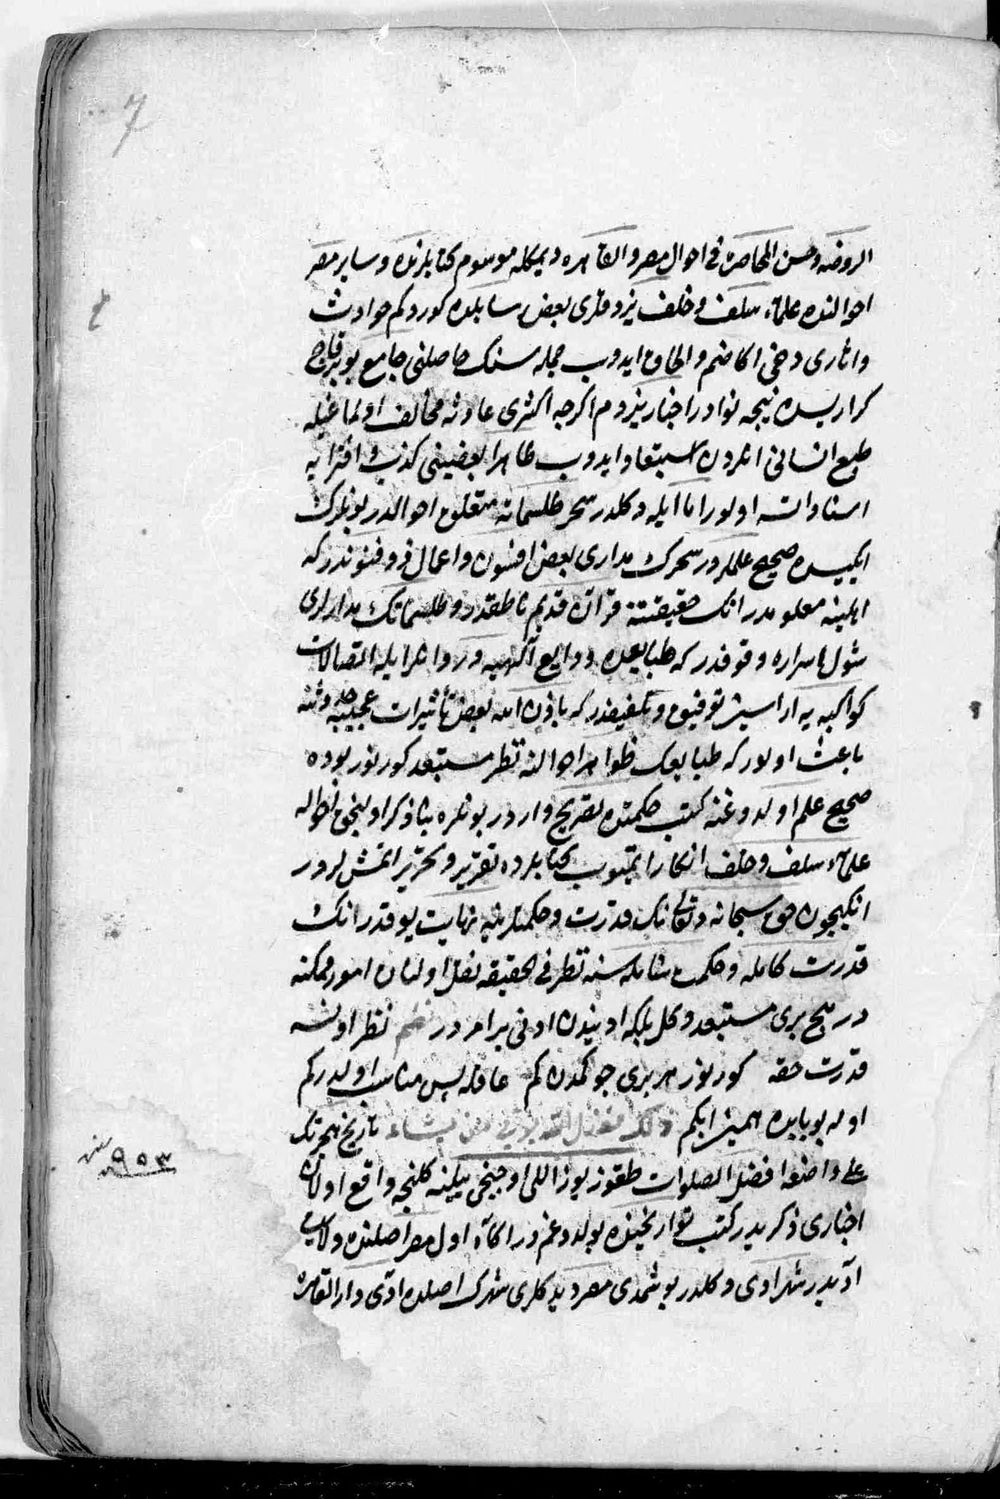 7
الروضه وحسن المحاضره فى احوال مصر والقاهره ديمكله موسوم كتابلرنده وساير مصر
احوالنده علماء سلف وخلف يزدقلرى بعض رسايلده كوردكم حوادث
واثارى دخى اكا ضم والحاق ايدوب جمله سنك حاصلنى جامع بو بر قاچ
كراريسده نيجه نوادر اخبار يزدم اكرچه اكثرى عادته مخالف اولماغيله
طبع انسانى انلردن استبعاد ايدوب ظاهرا بعضينى كذب وافترايه
اسناد اتسه اولور اما ايله دكلدر سحر وطلسماته متعلق احوالدر بونلرك
ايكيسيده صحيح علملردر سحرك مدارى بعض افسون واعمال وفنوندر كه
اهلينه معلومدر انك حقيقتنه قرآن قديم ناطقدر وطلسماتك مدارلرى
شول اسراره وقوفدر كه طبايعده ودايع آلهيه در وانلر ايله اتصالات
كواكبيه اراسين توفيق وتلفيقدر كه باذن الله بعض تأثيرات عجيبه حدوثنه
باعث اولور كه طبايعك ظواهر احوالنه نظر مستبعد كورنور بوده
صحيح علم اولدوغنه كتب حكمتده تصريح واردر بونلره بناء ذكر اولنجق احواله
علماء سلف وخلف انكار ايتميوب كتابلرده تقرير وتحرير ايتمشلردر
انكيچون حق سبحانه وتعالى نك قدرت وحكمتلرينه نهايت يوقدر انك
قدرت كامله وحكمت شامله سنه نظر فى الحقيقه نقل اولنان امور ممكنه
در هيچ برى مستبعد دكل بلكه اويندن ادنى بر امردر نظم نظر اولنسه
قدرت حقه كورنور هر برى جو كمدن كم عاقله پس مناسب اولدر كم
اوله بو بابده همين ايكم ذلك فضل الله يؤتيه من يشاء تاريخ هجرتك
على واضعها افضل الصلوات طقوز يوز اللى اوچنجى ييلنه كلنجه واقع اولان
سنه ٩٥٣
اخبارى ذكر ايدر كتب تواريخده بولدوغمدر اكا اول مصر اصلنده ولايت
آديدر شهر ادى دكلدر بو شمدى مصر ديدكلرى شهرك اصلده ادى دار القاهره